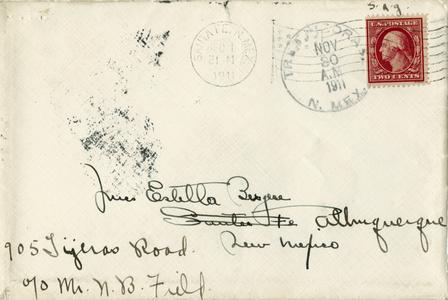 s. a. g
SANTA FE, N. MEX.
1911
NOV
30
A.M.
1911
N. MEX.
U.S. POSTAGE
TWO CENTS
Miss Estella Bergere
Santa Fe Albuquerque
New Mexico
905 Tijeras Road.
c/o Mr. N. B. Field.